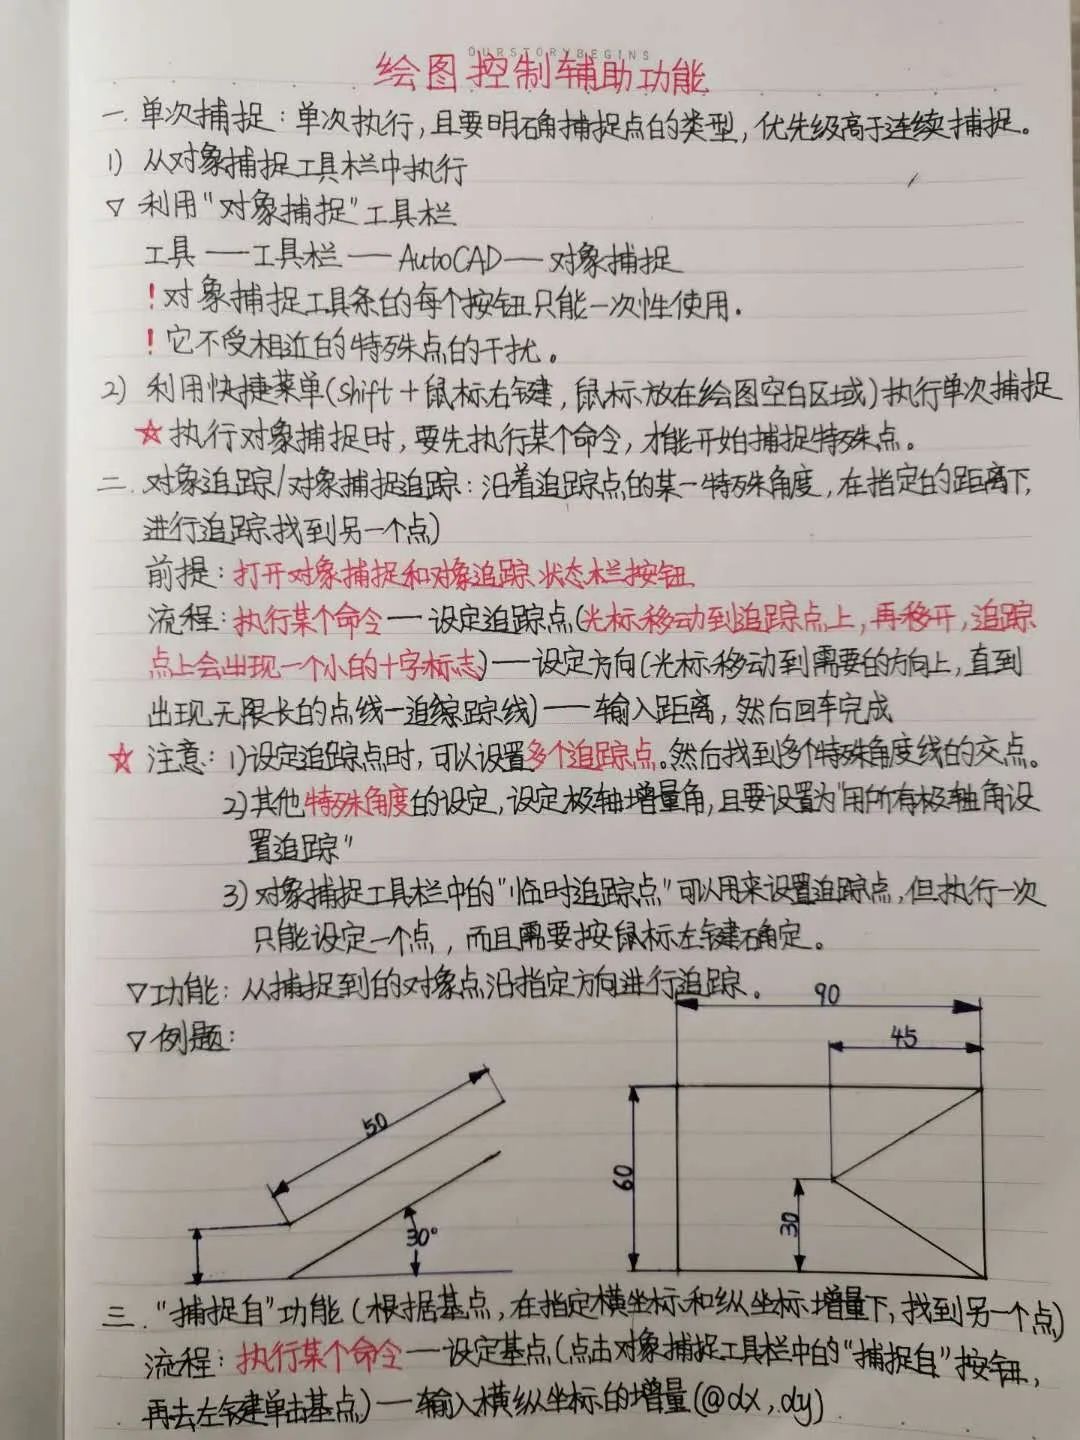 OURSTORYBEGINS
绘图控制辅助功能
一.单次捕捉:单次执行,且要明确捕捉点的类型,优先级高于连续捕捉。
1) 从对象捕捉工具栏中执行
▽ 利用"对象捕捉"工具栏
工具——工具栏——AutoCAD——对象捕捉
!对象捕捉工具条的每个按钮只能一次性使用.
!它不受相近的特殊点的干扰。
2) 利用快捷菜单(shift+鼠标右键,鼠标放在绘图空白区域)执行单次捕捉
☆执行对象捕捉时,要先执行某个命令,才能开始捕捉特殊点。
二.对象追踪/对象捕捉追踪:沿着追踪点的某一特殊角度,在指定的距离下,
进行追踪找到另一个点)
前提:打开对象捕捉和对象追踪状态栏按钮
流程:执行某个命令—设定追踪点(光标移动到追踪点上,再移开,追踪
点上会出现一个小的十字标志)—设定方向(光标移动到需要的方向上,直到
出现无限长的点线—追踪线)——输入距离,然后回车完成
☆ 注意:1)设定追踪点时,可以设置多个追踪点。然后找到多个特殊角度线的交点。
2)其他特殊角度的设定,设定极轴增量角,且要设置为"用所有极轴角设
置追踪"
3)对象捕捉工具栏中的"临时追踪点"可以用来设置追踪点,但执行一次
只能设定一个点,而且需要按鼠标左键确定。
▽功能:从捕捉到的对象点沿指定方向进行追踪.
▽例题:
90
45
50
60
30
30°
三."捕捉自"功能(根据基点,在指定横坐标和纵坐标增量下,找到另一个点)
流程:执行某个命令—设定基点(点击对象捕捉工具栏中的"捕捉自"按钮,
再去左键单击基点)—输入横纵坐标的增量(@dx,dy)